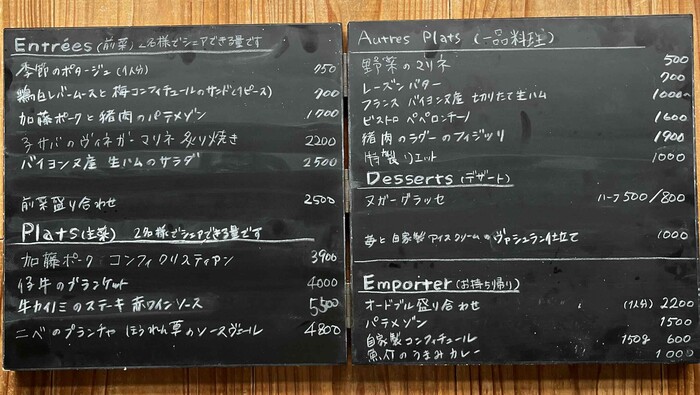 Entrées (前菜) 2名様でシェアできる量です
季節のポタージュ (1人分) 750
鶏白レバームースと梅コンフィチュールのサンド(1ピース) 700
加藤ポークと猪肉のパテメゾン 1700
サバのヴィネガーマリネ 炙り焼き 2200
バイヨンヌ産 生ハムのサラダ 2500
前菜盛り合わせ 2500
Plats (主菜) 2名様でシェアできる量です
加藤ポーク コンフィ クリスティアン 3900
仔牛のブランケット 4000
牛カイノミのステーキ 赤ワインソース 5500
ニベのプランチャ ほうれん草のソースヴェール 4800
Autres Plats (一品料理)
野菜のマリネ 500
レーズンバター 700
フランス バイヨンヌ産 切りたて生ハム 1000〜
ビストロ ペペロンチーノ 1600
猪肉のラグーのフィジッリ 1900
特製リエット 1000
Desserts (デザート)
ヌガーグラッセ ハーフ500/800
苺と自家製アイスクリームのヴァシュラン仕立て 1000
Emporter (お持ち帰り)
オードブル盛り合わせ (1人分) 2200
パテメゾン 1500
自家製コンフィチュール 150g 600
魚介のうまみカレー 1000